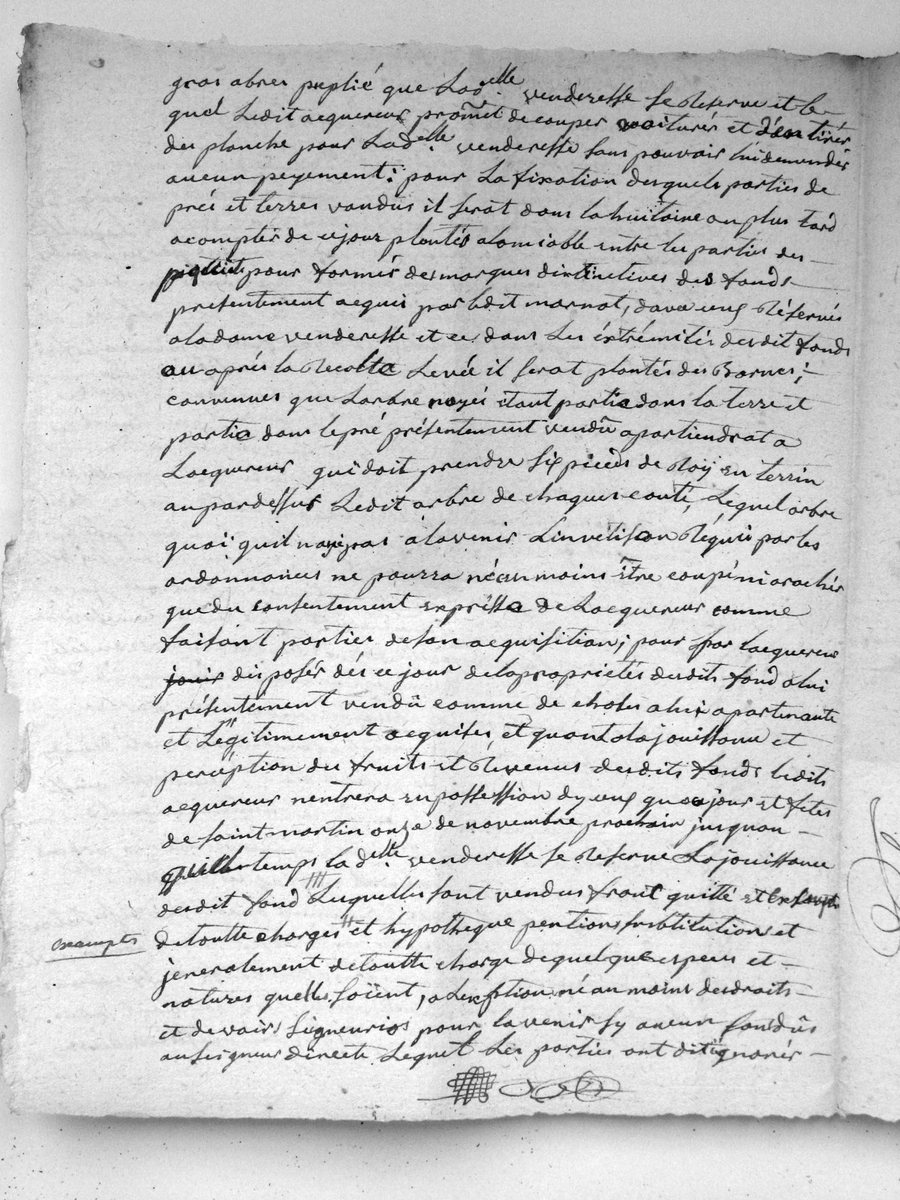 gros abres peplié que Ladelle venderesse se Reserve et le
quel Ledit acquereur promet de couper voiturér et d'en tirér
des planche pour Ladelle venderesse sans pouvoir lui demandér
aucun peyement; pour La fixation desquels parties de
prée et terres vandus il serat dans la huitaine au plus tard
acomptér de ce jour plantés alamiable entre les parties des
piquets pour formér des marques distinctives des fonds
présentement acquis par ledit marnat, davec ceux Réservés
aladame venderesse et ce dans Les éxtrémités desdit fonds
ou aprés la Recolte Levée il serat plantés des Bornes;
convennes que Larbre noyés étant partie dans la terre et
partie dans lepré présentement vendû apartiendrat a
Lacquereur qui doit prendre six pieds de Roÿ en terrin
aupardessus Ledit arbre de chaque couté, Lequel arbre
quoi quil nay pas à lavenir Linvétison Réquis par les
ordonnances ne pourra néanmoins être coupé ni arachér
que du consentement expresse de Lacquereur comme
faisant parties deson acquisition; pour par Lacquereur
jouir disposér dés ce jour de la propriétés desdits fond a lui
présentement vendû comme de choses a lui apartenante
et Légitimement acquises, et quant a la jouissance et
perception des fruits et Revenus desdits fonds ledits
acquereur nentrera en possession dyceux quau jour et fétes
de saint martin onze de novembre prochain jusquau
quel temps ladelle venderesse se Reserve La jouissance
desdit fond Lesquelles sont vendus franc quitte et
detoutte charges et hypotheque pentions substitutions et
exempts
jeneralement detoutte charge dequelque especes et
natures quelles soïent, a Lexseption néanmoins des droits
et devoirs signeurios pour lavenir sy aucun sont dûs
auseigneur directe Lequel Les parties ont dit ignorér